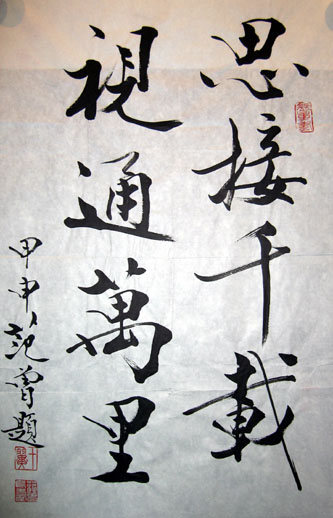 思接千載
視通萬里
甲申范曾題